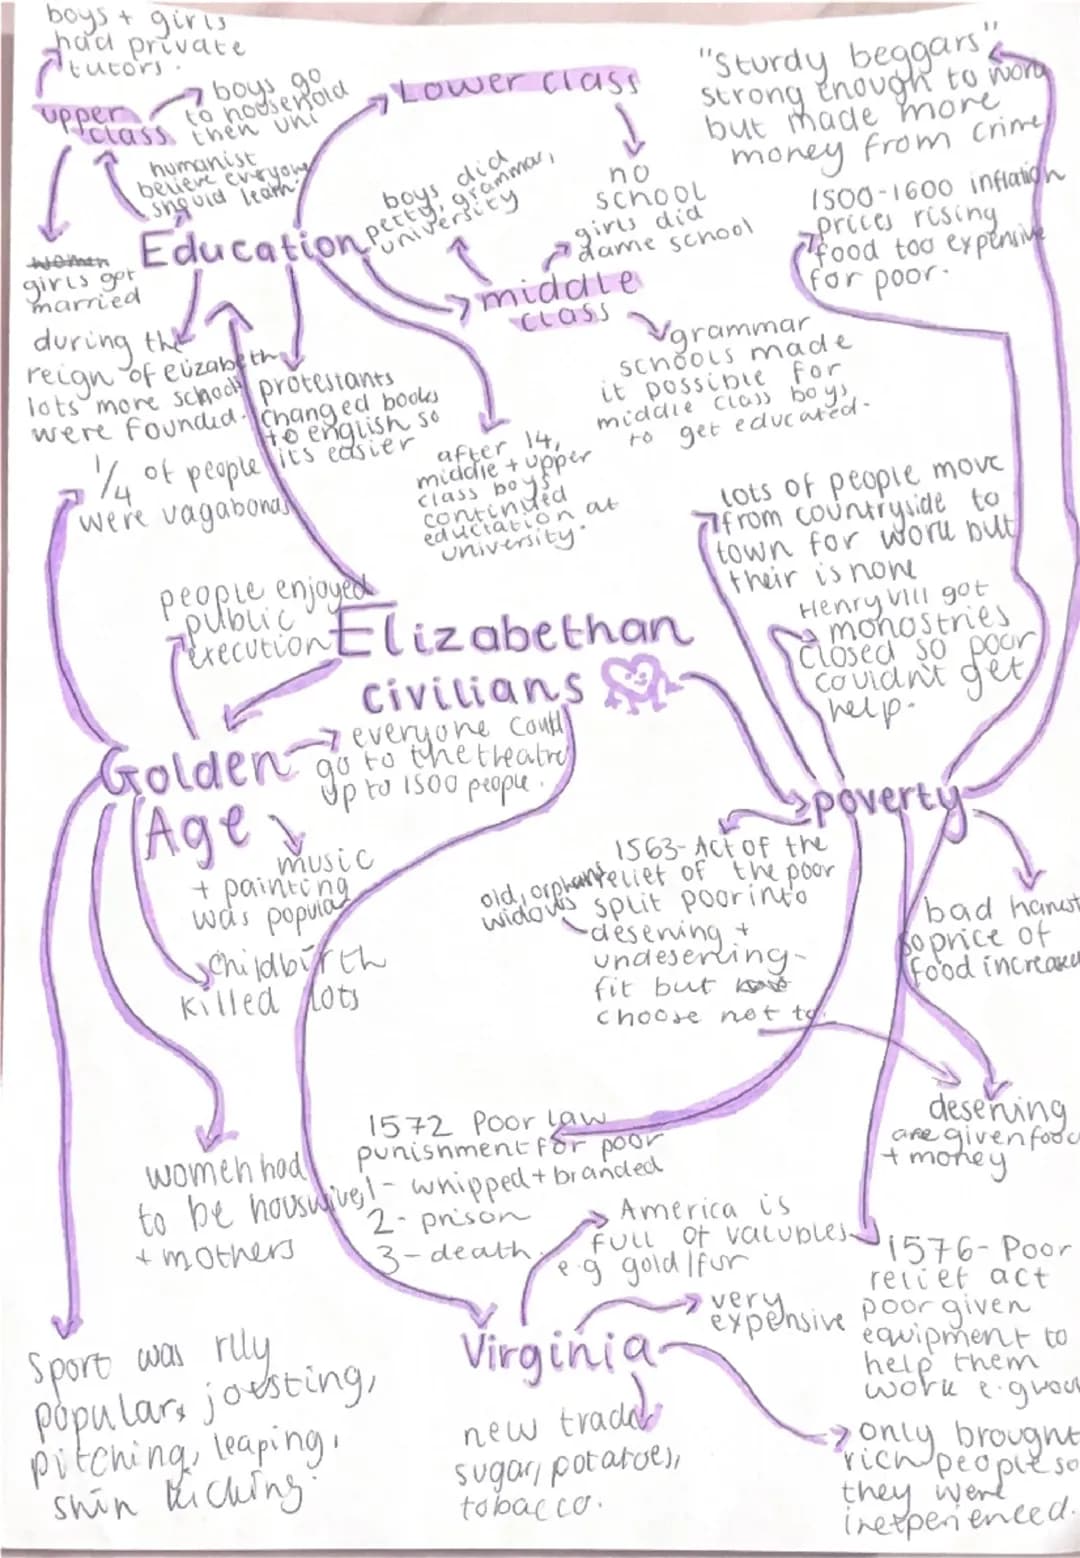 boys + girls
had private
tutors.
upper
class
boys go
to household
then uni
humanist
believe everyone
should learn.
women
girls get
married
Education
Lower class
no
school
girls did
dame school
boys did
petty, grammar,
university
middle
class
grammar
schools made
it possible for
middle class boys
to get educated.
during the
reign of elizabeth
lots more schools
were founded.
protestants
changed books
to english so
its easier
after 14,
middle + upper
class boys
continued
eductation at
university.
"Sturdy beggars"
strong enough to work
but made more
money from crime
1500-1600 inflation
prices rising
food too expensive
for poor.
1/4 of people
were vagabonds
people enjoyed
public
execution
Elizabethan
civilians
lots of people move
from countryside to
town for work but
their is none
Henry VIII got
monostries
closed so poor
couldnt get
help.
Golden
Age
everyone could
go to the theatre
up to 1500 people.
music
+ painting
was popular
childbirth
killed lots
women had
to be houswives
+ mothers
Sport was rlly
popular, jousting,
pitching, leaping,
shin kicking.
poverty
1563- Act of the
relief of the poor
split poor into
deserving +
undeserving-
fit but
choose not to.
old, orphans,
widows
bad harvest
so price of
food increased
deserving
are given food
+ money
1572 Poor Law
punishment for poor
1- whipped + branded
2- prison
3- death
1576- Poor
relief act
poor given
equipment to
help them
work e.g wool
Virginia
America is
full of valubles
e.g gold/fur
very
expensive
new trade
sugar, potatoes,
tobacco.
only brought
rich people so
they were
inexperienced.